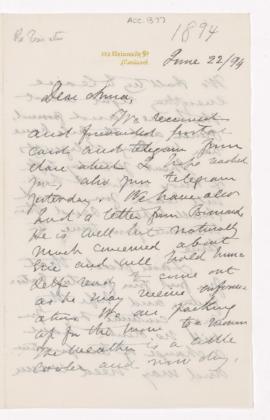 ACC. 877
1894
University St
Montreal
June 22/94
Dear Anna,
We received
and forwarded postal
card and telegram from
which I hope reached
you, also your telegram
yesterday. We have also
had a letter from Bernard
He is well but naturally
much concerned about
Eric and will hold him-
self ready to come out
as he may receive inform-
ation. We are packing
up for the move to
The weather is a little
cooler and now dry.